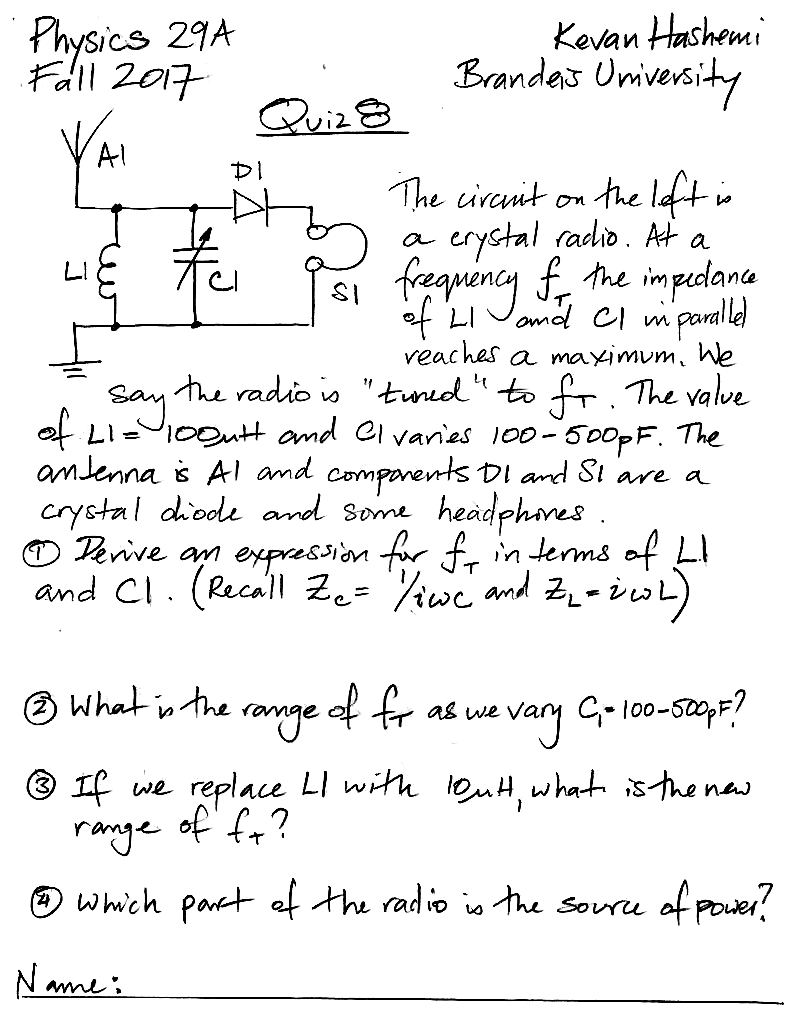 Physics 29A
Fall 2017
Kevan Hashemi
Brandeis University
Quiz 8
A1
D1
L1
C1
S1
The circuit on the left is
a crystal radio. At a
frequency f_T the impedance
of L1 and C1 in parallel
reaches a maximum. We
say the radio is "tuned" to f_T. The value
of L1 = 100uH and C1 varies 100-500pF. The
antenna is A1 and components D1 and S1 are a
crystal diode and some headphones.
① Derive an expression for f_T in terms of L1
and C1. (Recall Z_c = 1/iωC and Z_L = iωL)
② What is the range of f_T as we vary C_1 = 100-500pF?
③ If we replace L1 with 10uH, what is the new
range of f_T?
④ Which part of the radio is the source of power?
Name: